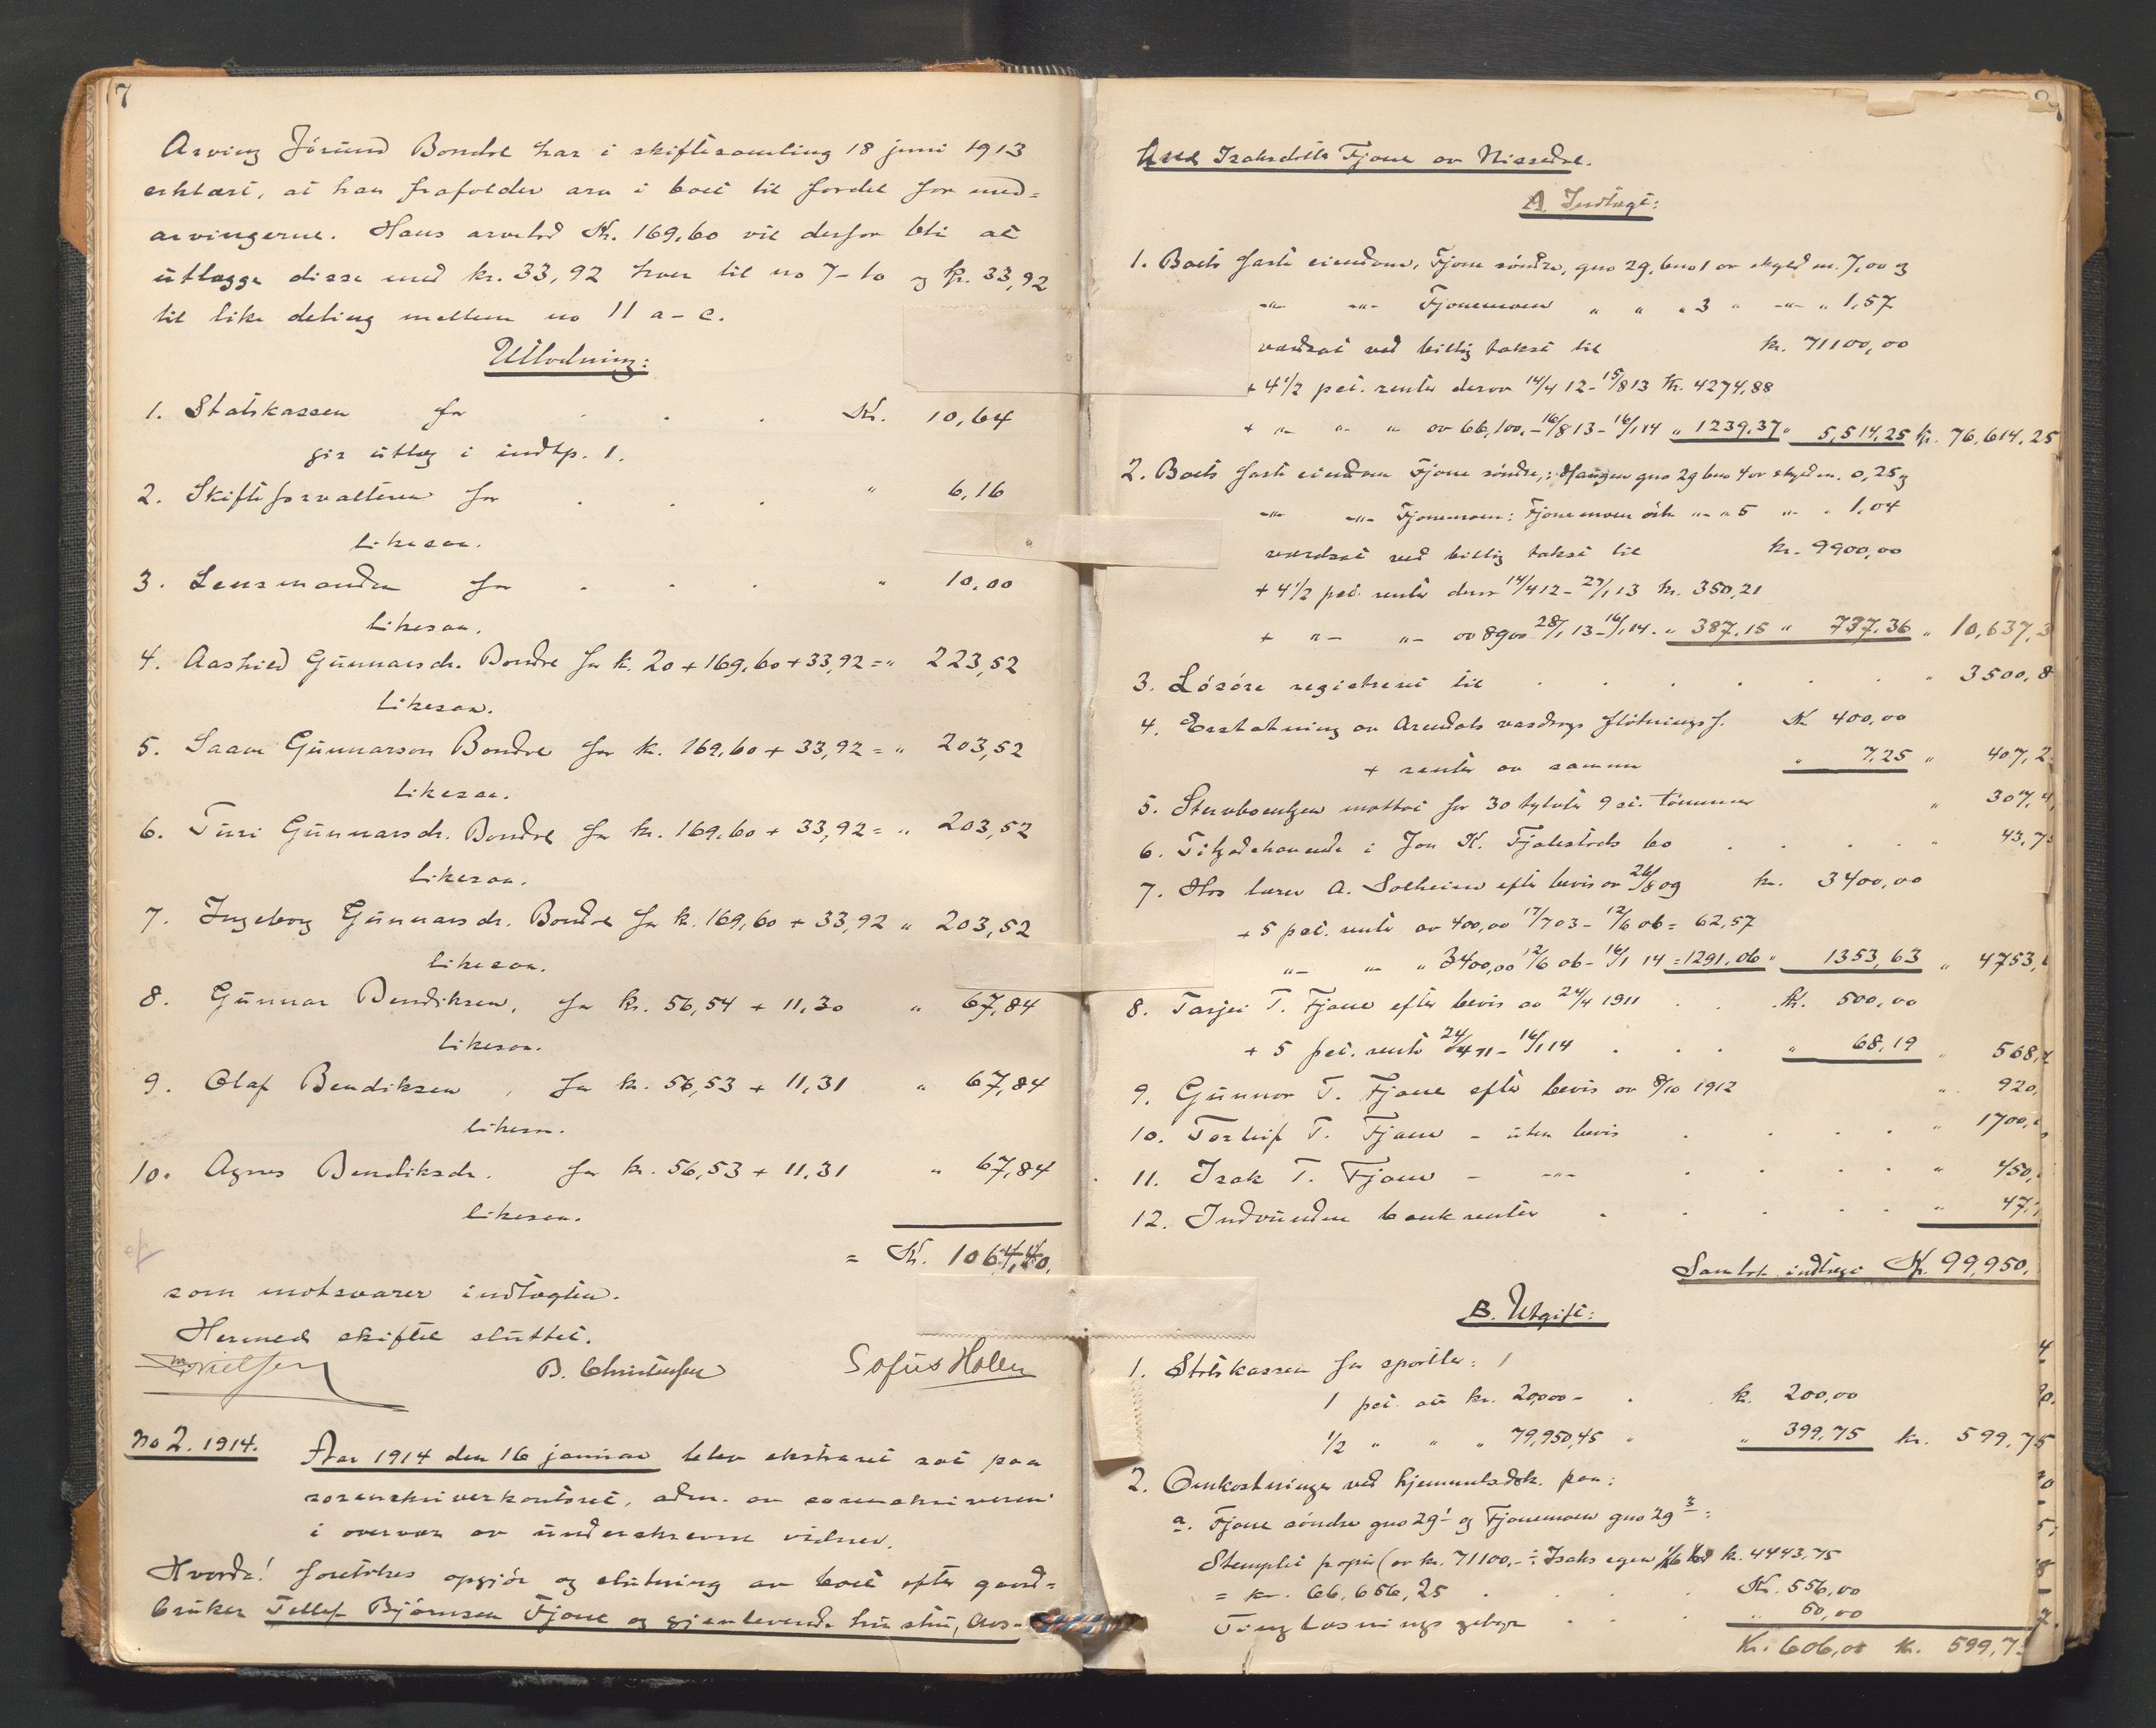 7
Arving Jörund Bondal har i skiftesamling 18 juni 1913
erklært, at han frafalder arv i boet til fordel for med=
arvingerne. Hans arvelod Kr. 169,60 vil derfor bli at
utlægge disse med kr. 33,92 hver til no 7-10 og kr. 33,92
til like deling mellem no 11 a-c.
Utlodning:
1. Statskassen for . . . Kr. 10,64
gis utlæg i indtp. 1.
2. Skifteforvalteren for . . . " 6,16
likesaa.
3. Lensmanden for . . . " 10,00
likesaa.
4. Aashild Gunnarsdr. Bondal for kr. 20 + 169,60 + 33,92 = " 223,52
likesaa.
5. Saave Gunnarson Bondal for kr. 169,60 + 33,92 = " 203,52
likesaa.
6. Turi Gunnarsdr. Bondal for kr. 169,60 + 33,92 = " 203,52
likesaa.
7. Ingeborg Gunnarsdr. Bondal for kr. 169,60 + 33,92 " 203,52
likesaa.
8. Gunnar Bendiksen, for kr. 56,54 + 11,30 " 67,84
likesaa.
9. Olaf Bendiksen, for kr. 56,53 + 11,31 " 67,84
likesaa.
10. Agnes Bendiksdr. for kr. 56,53 + 11,31 " 67,84
likesaa.
= Kr. 1064,40.
som motsvarer indtægten.
Hermed skiftet sluttet.
Nielsen B. Christensen Sofus Holen
No 2. 1914. Aar 1914 den 16 januar blev ekstraret sat paa
sorenskriverkontoret, adm. av sorenskriveren
i overvær av underskrevne vidner.
Hvorda! foretokes opgjör og slutning av boet efter gaard=
bruker Tellef Björnsen Fjone og gjenlevende hustru, Aas=
Aase Isaksdotter Fjone av Nissedal.
A Indtægt:
1. Boets faste eiendom, Fjone söndre, gno 29, bno 1 av skyld m. 7,00 og
-"- -"- Fjonemoen " " " 3 " -"- " 1,57
værdsat ved billig takst til kr. 71100,00
+ 4 1/2 pct. renter derav 14/4 12 - 15/8 13 Kr. 4274,88
+ "- "- " av 66,100,- 16/8 13 - 16/1 14 " 1239,37 " 5,514,25 kr. 76,614,25
2. Boets faste eiendom Fjone söndre,: Haugen gno 29 bno 4 av skyld m. 0,25 og
-"- -"- Fjonemoen: Fjonemoen östr. "- " 5 "- " 1,04
værdsat ved billig takst til kr. 9900,00
+ 4 1/2 pct. renter derav 14/4 12 - 27/1 13 kr. 350,21
+ "- "- av 8900 28/1 13 - 16/1 14 " 387,15 " 737,36 " 10,637,3
3. Lösöre registreret til . . . . . " 3500,8
4. Erstatning av Arendals vasdrags flötningsf. Kr. 400,00
+ renter av samme " 7,25 " 407,2
5. Stervboenken mottat for 30 tylvter 9 st. tömmer " 307,
6. Tilgodehavende i Jon K. Fjalestads bo . . . " 43,7
7. Hos lærer A. Solheim efter bevis av 26/8 09 kr. 3400,00
+ 5 pct. renter av 400,00 17/7 03 - 12/6 06 = 62,57
"- "- " 3400,00 12/6 06 - 16/1 14 = 1291,06 " 1353,63 " 4753,6
8. Tarjei T. Fjone efter bevis av 24/4 1911 . . Kr. 500,00
+ 5 pct. rente 24/4 11 - 16/1 14 . . . " 68,19 " 568,
9. Gunnar T. Fjone efter bevis av 8/10 1912 " 920,
10. Torleif T. Fjone - uten bevis . . . " 1700,
11. Isak T. Fjone - -"- . . . " 450,
12. Indvundne bankrenter . . . . " 47,
Samlet indtægt Kr. 99,950.
B. Utgift:
1. Statskassen for sportler:
1 pct. av kr. 20,000 - . kr. 200,00
1/2 " " " 79,950,45 " " 399,75 kr. 599,75
2. Omkostninger ved hjemmelsdok. paa:
a. Fjone söndre gno 29 1 og Fjonemoen gno 29 3:
Stemplet papir (av kr. 71100,- ÷ Isaks egen 1/16 lod kr. 4443,75
= kr. 66,656,25 . . . Kr. 556,00
Tinglæsningsgebyr . . . " 50,00
Kr. 606,00 kr. 599,7